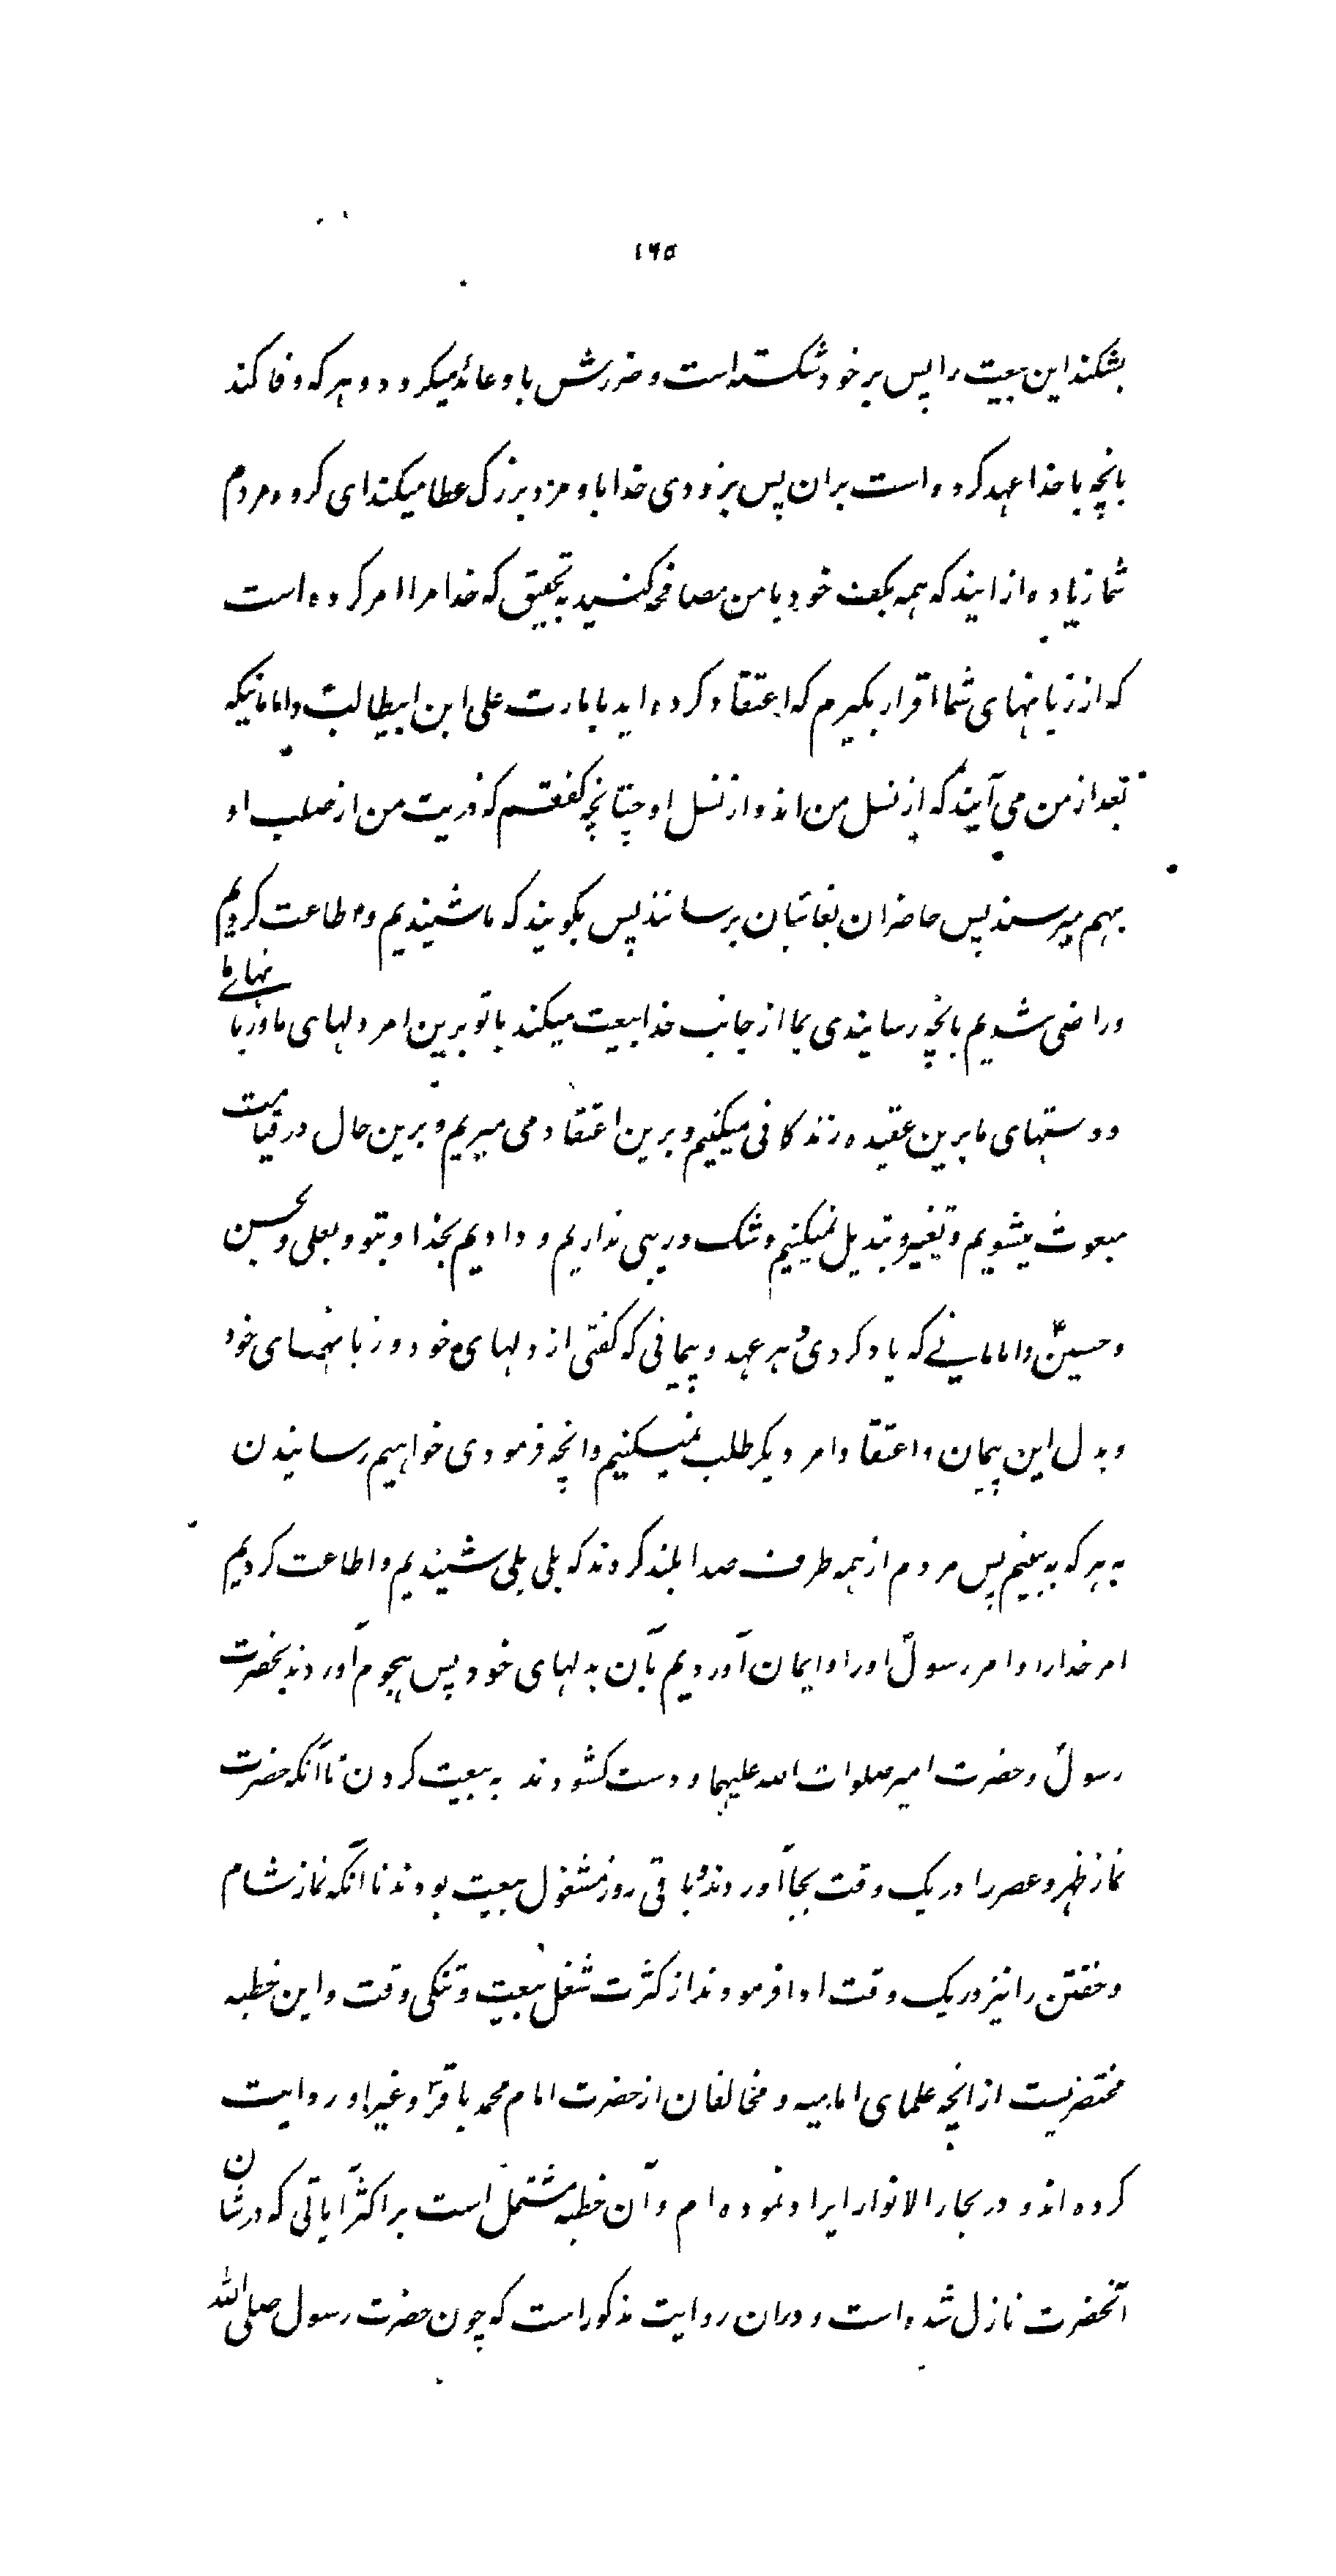 ۱۶۵
بشکند این بیعت را پس بر خود شکسته است و ضررش باو عائد میکردد و هر که وفا کند
بانچه با خدا عهد کرده است بران پس بزودی خدا باو مزد بزرک عطا میکند ای کروه مردم
شما زیاده از ایند که همه بکف خود با من مصافحه کنید به تحقیق که خدا مرا امر کرده است
که از زبانهای شما اقرار بکیرم که اعتقاد کرده اید بامارت علی ابن ابیطالب و امامانیکه
بعد از من می آیند که از نسل من اند و از نسل او چنانچه کفتم که ذریت من از صلب او
بهم میرسند پس حاضران بغائبان برسانند پس بکویند که ما شنیدیم و اطاعت کردیم
و راضی شدیم بانچه رسانیدی بما از جانب خدا بیعت میکند با تو برین امر دلهای ما و زبانهای ما
و دستهای ما برین عقیده زندکانی میکنیم و برین اعتقاد می میریم و برین حال در قیامت
مبعوث میشویم و تغییر و تبدیل نمیکنیم و شک و ریبی نداریم و دادیم بخدا و بتو و بعلی و بحسن
و حسینؑ و امامانے که یاد کردی و هر عهد و پیمانی که کفتی از دلهای خود و زبانهای خود
و بدل این پیمان و اعتقاد امر دیکر طلب نمیکنیم و انچه فرمودی خواهیم رسانیدن
به هر که به بینیم پس مردم از همه طرف صدا بلند کردند که بلی بلی شنیدیم و اطاعت کردیم
امر خدا را و امر رسولؐ او را و ایمان آوردیم بآن بدلهای خود پس هجوم آوردند بحضرت
رسولؐ و حضرت امیر صلوات الله علیهما و دست کشودند به بیعت کردن تا آنکه حضرت
نماز ظهر و عصر را در یک وقت بجا آوردند و باقی روز مشغول بیعت بودند تا آنکه نماز شام
و خفتن را نیز در یک وقت ادا فرمودند از کثرت شغل بیعت و تنکی وقت و این خطبه
مختصریست از انچه علمای امامیه و مخالفان از حضرت امام محمد باقرؑ و غیر او روایت
کرده اند و در بحار الانوار ایراد نموده ام و آن خطبه مشتمل است بر اکثر آیاتی که در شان
آنحضرت نازل شده است و دران روایت مذکور است که چون حضرت رسول صلی الله